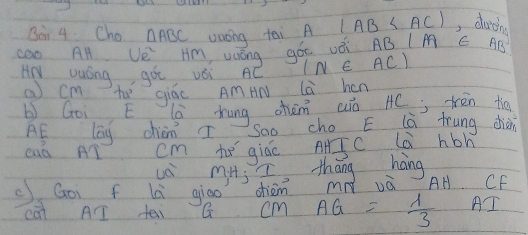 Bài 4 Cho ΔABC vuông tại A (AB < AC), đường
cao AH. Vẽ HM vuông góc với AB (M ∈ AB
HN vuông góc với AC (N ∈ AC)
a) CM tứ giác AMHN là hcn
b) Gọi E là trung điểm của HC; trên tia
AE lấy điểm I sao cho E là trung điểm
của AI CM tứ giác AHIC là hbh
và M;H; I thẳng hàng
c) Gọi F là giao điểm MN và AH. CF
cắt AI tại G CM AG = 1/3 AI